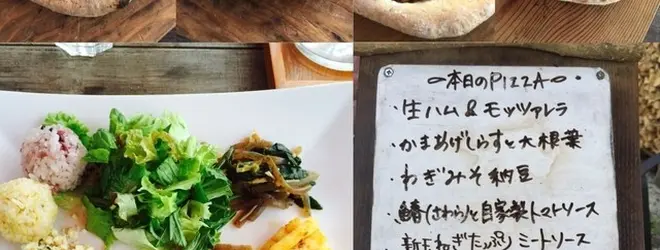 本日のPIZZA
・生ハム&モッツァレラ
・かまあげしらすと大根葉
・ねぎみそ納豆
・鰆(さわら)と自家製トマトソース
・新玉ねぎたっぷりミートソース